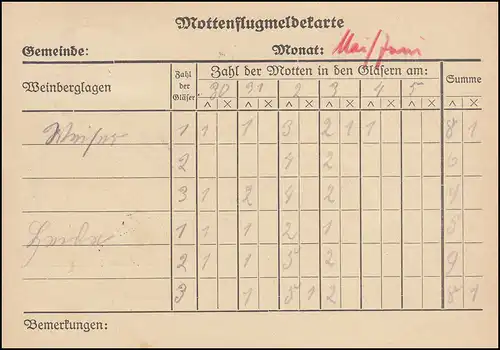 Mottenflugmeldekarte
Gemeinde: Monat: Mai/Juni
Weinberglagen Zahl der Gläser Zahl der Motten in den Gläsern am: Summe
30 31 2 3 4 5
^ X ^ X ^ X ^ X ^ X ^ X ^ X
1 1 1 3 2 1 1 8 1
2 4 2 6
3 1 2 4 2
1 1 1 2 1 5
2 1 1 5 2 9
3 1 5 1 2 8 1
Bemerkungen: